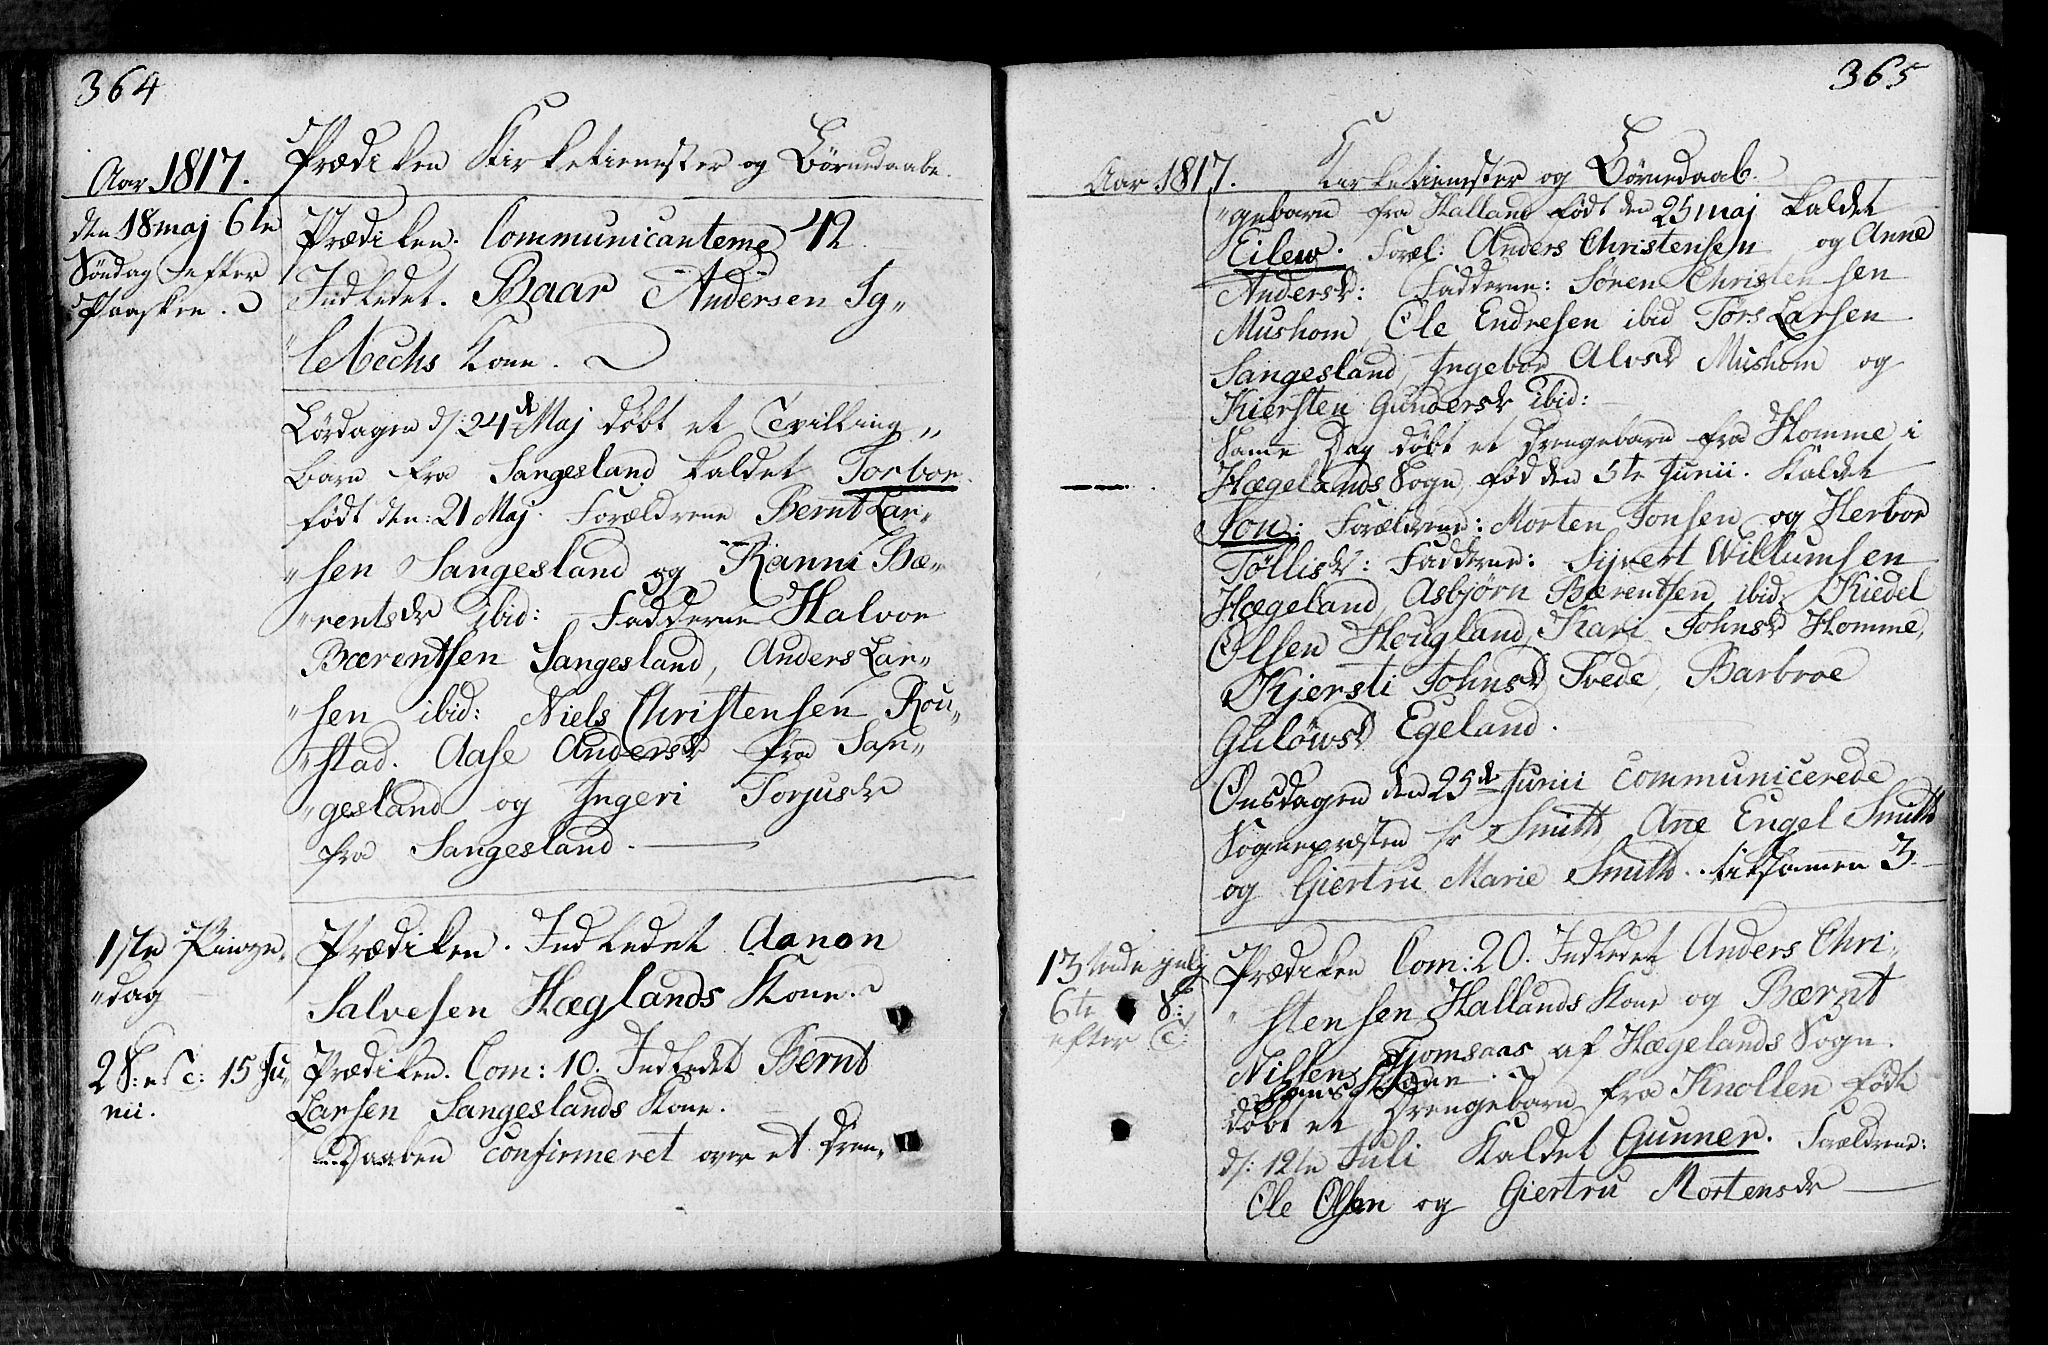 364
Aar 1817. Prædiken Kirketienester og Börnedaabe.
den 18 maj 6te
Söndag efter
Paasken.
Prædiken. Communicanterne 42.
Indledet. Baar Andersen Ig„
„lebechs Kone.
Lördagen d: 24de Maj döbt et Tvilling„
barn fra Sangesland kaldet Torbor.
född den: 21 Maj. Forældrene Bernt Lar„
„sen Sangesland og Ranni Bæ„
„rentsdr ibid: Fadderne Halvor
Bærentsen Sangesland, Anders Lar„
„sen ibid: Niels Christensen Rou„
„stad. Aase Andersdr fra San„
„gesland og Ingeri Torjusdr
fra Sangesland.
1ste Pinge„
„dag
Prædiken. Indledet Aanon
Salvesen Hæglands Kone.
2 S: e T: 15 Ju„
nii.
Prædiken. Com: 10. Indledt Bernt
Larsen Sangeslands Kone.
Daaben confirmeret over et Dren„
365
Aar 1817. Kirketienester og Börnedaab.
„gebarn fra Halland födt den 25 maj kaldet
Eilew. Foræl: Anders Christensen og Anne
Andersdr: Fadderne: Sören Christensen
Mushom, Ole Endresen ibid Törs Larsen
Sangesland, Ingebor Alvsdr Mushom og
Kiersten Gundersdr ibid:
Same Dag döbt et Drengebarn fra Homme i
Hægelands Sogn, föd den 5te Junii. Kaldet
Jon: Forældrene: Morten Jonsen og Herbor
Töllisdr: Fadderne: Sijvert Willumsen
Hægeland, Asbjörn Bærentsen ibid: Kiedel
Olsen Heugland, Kari Johnsdr Homme,
Kjersti Johnsdr Tvede, Barbroe
Gulöwsdr Egeland.
Onsdagen den 25de Junii communicerede
Sognepræsten hr Smith, Ane Engel Smith
og Giertru Marie Smith. tilsamen 3
13tende july
6te S:
efter T:
Prædiken Com: 20. Indledet Anders Chri„
„stensen Hallands Kone og Bærnt
Nilsen Fjomsaas af Hægelands Sogn.
Kone.
döbt et Drengebarn fra Knollen födt
d: 12te Juli Kaldet Gunner. Forældrene:
Ole Olsen og Giertru Mortensdr